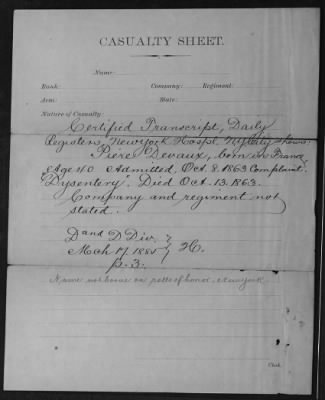 CASUALTY SHEET.
Name
Rank: Company: Regiment:
Arm: State:
Nature of Casualty:
Certified Transcript, Daily
Register, New York Hospl. NY City shows:
Piere Devaux, born in France
Age 40 Admitted, Oct. 8. 1863 Complaint:
"Dysentery". Died Oct. 13. 1863.
Company and regiment not
stated.
D and D Div.
Mch 17, 1885
p. 3.
Name not borne on rolls of honor. New York.
Clerk.